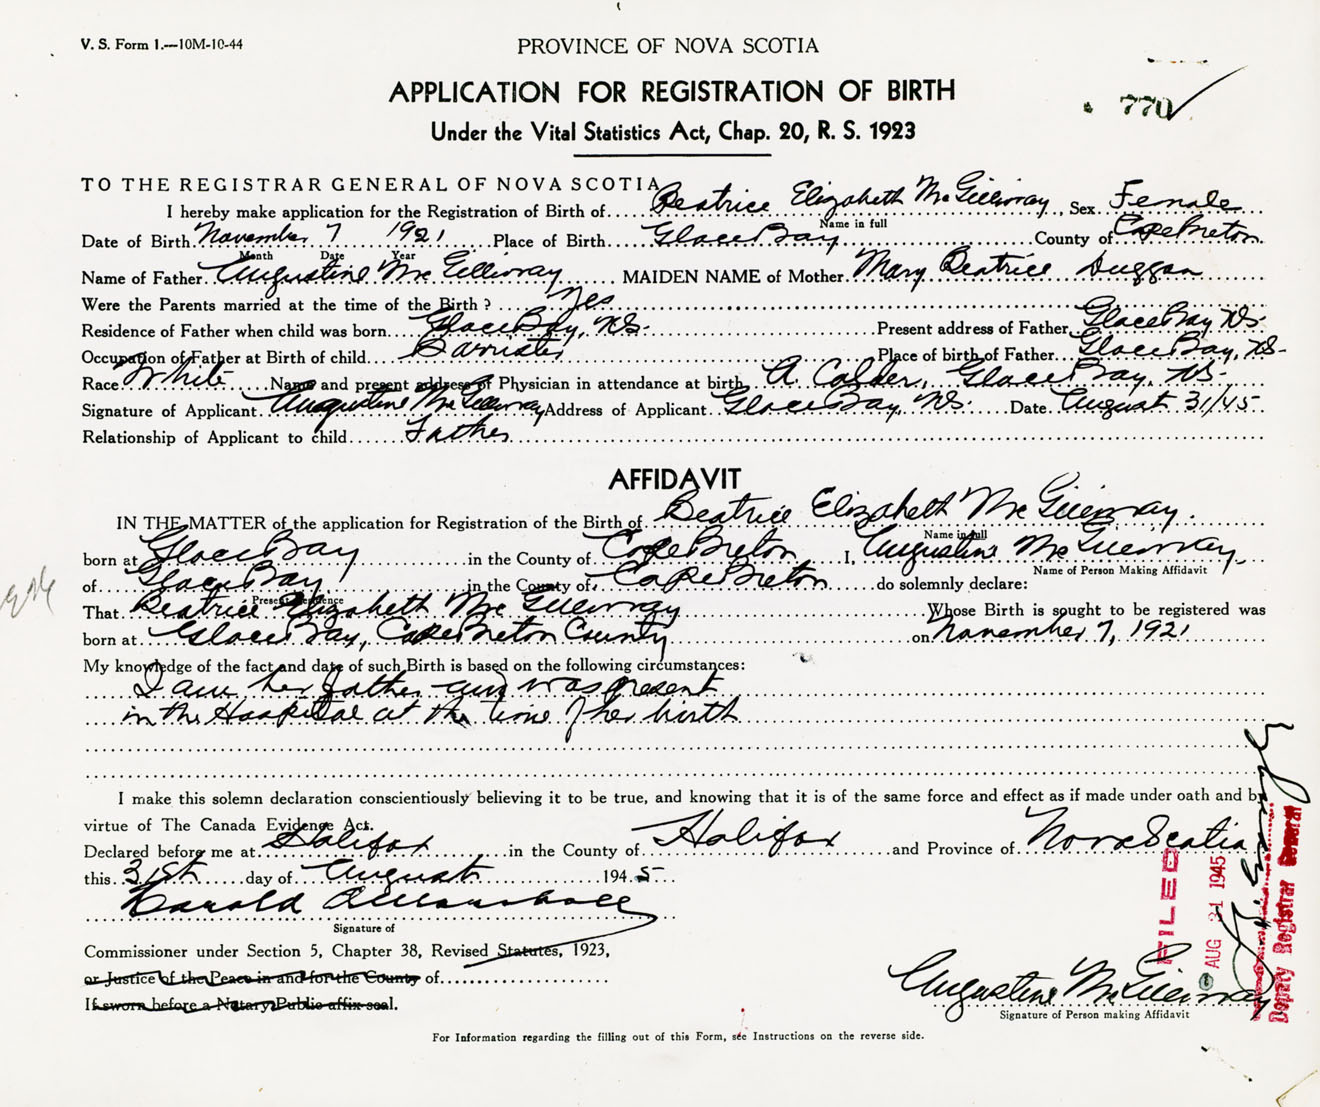 V. S. Form 1.—10M-10-44
PROVINCE OF NOVA SCOTIA
APPLICATION FOR REGISTRATION OF BIRTH
770
Under the Vital Statistics Act, Chap. 20, R. S. 1923
TO THE REGISTRAR GENERAL OF NOVA SCOTIA
I hereby make application for the Registration of Birth of Beatrice Elizabeth McGillivray, Sex Female
Name in full
Date of Birth November 7 1921 Place of Birth Glace Bay County of Cape Breton
Month Date Year
Name of Father Augustine McGillivray MAIDEN NAME of Mother Mary Beatrice Duggan
Were the Parents married at the time of the Birth? Yes
Residence of Father when child was born Glace Bay, N.S. Present address of Father Glace Bay N.S.
Occupation of Father at Birth of child Barrister Place of birth of Father Glace Bay, N.S.
Race White Name and present address of Physician in attendance at birth A. Calder, Glace Bay, N.S.
Signature of Applicant Augustine McGillivray Address of Applicant Glace Bay, N.S. Date August 31/45
Relationship of Applicant to child Father
AFFIDAVIT
IN THE MATTER of the application for Registration of the Birth of Beatrice Elizabeth McGillivray.
Name in full
born at Glace Bay in the County of Cape Breton I, Augustine McGillivray,
Name of Person Making Affidavit
of Glace Bay in the County of Cape Breton do solemnly declare:
Present Residence
That Beatrice Elizabeth McGillivray Whose Birth is sought to be registered was
born at Glace Bay, Cape Breton County on November 7, 1921
My knowledge of the fact and date of such Birth is based on the following circumstances:
I am her father and was present
in the Hospital at the time of her birth
I make this solemn declaration conscientiously believing it to be true, and knowing that it is of the same force and effect as if made under oath and by
virtue of The Canada Evidence Act.
Declared before me at Halifax in the County of Halifax and Province of Nova Scotia
this 31st day of August 1945
Harold
Signature of
Commissioner under Section 5, Chapter 38, Revised Statutes, 1923,
or Justice of the Peace in and for the County of
If sworn before a Notary Public affix seal.
FILED
AUG 31 1945
Deputy Registrar General
Augustine McGillivray
Signature of Person making Affidavit
For Information regarding the filling out of this Form, see Instructions on the reverse side.